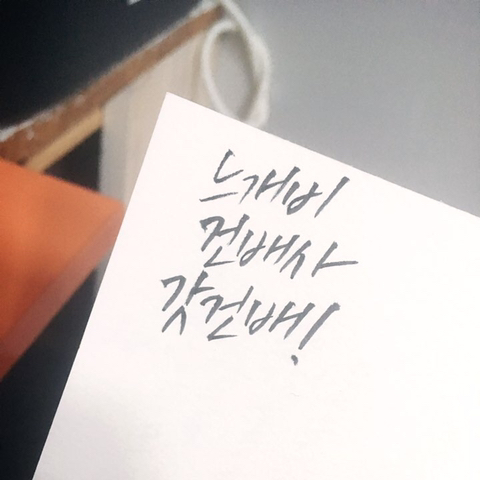 느개비
건배사
갓건배!